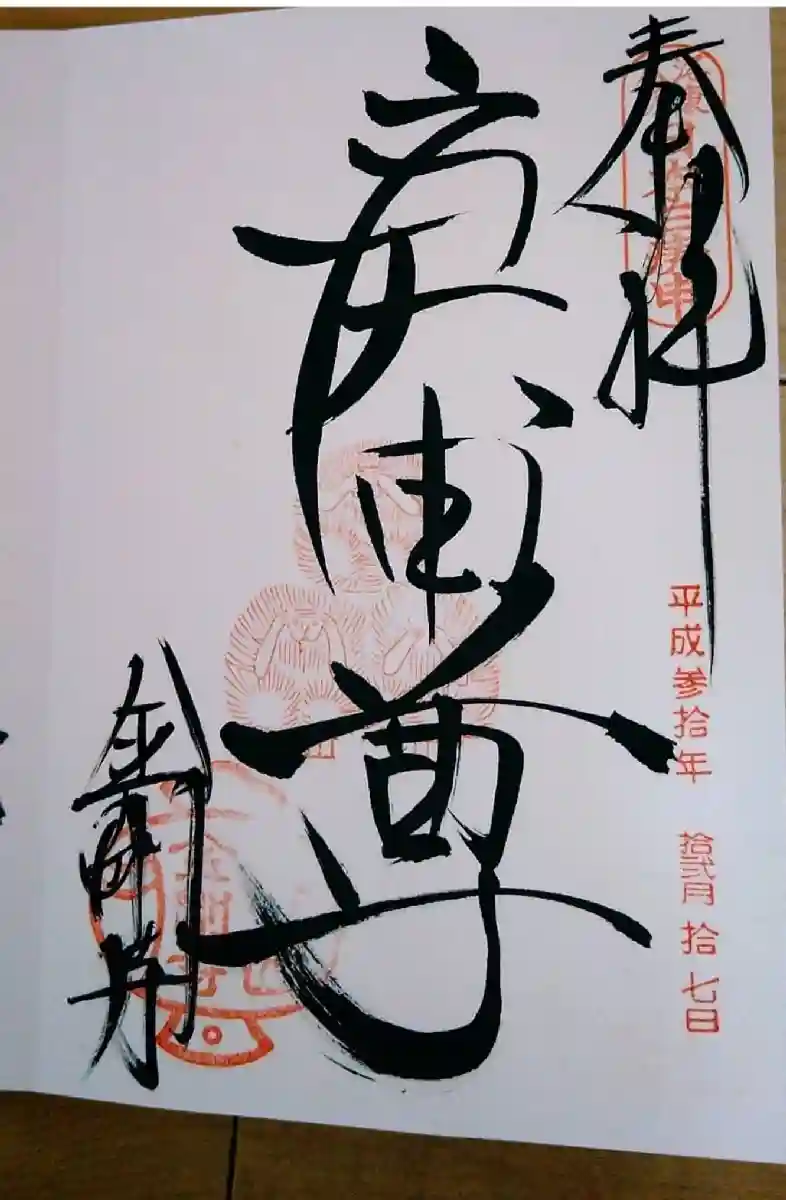 奉拝
平成参拾年 拾弐月 拾七日
庚申尊
金剛寺